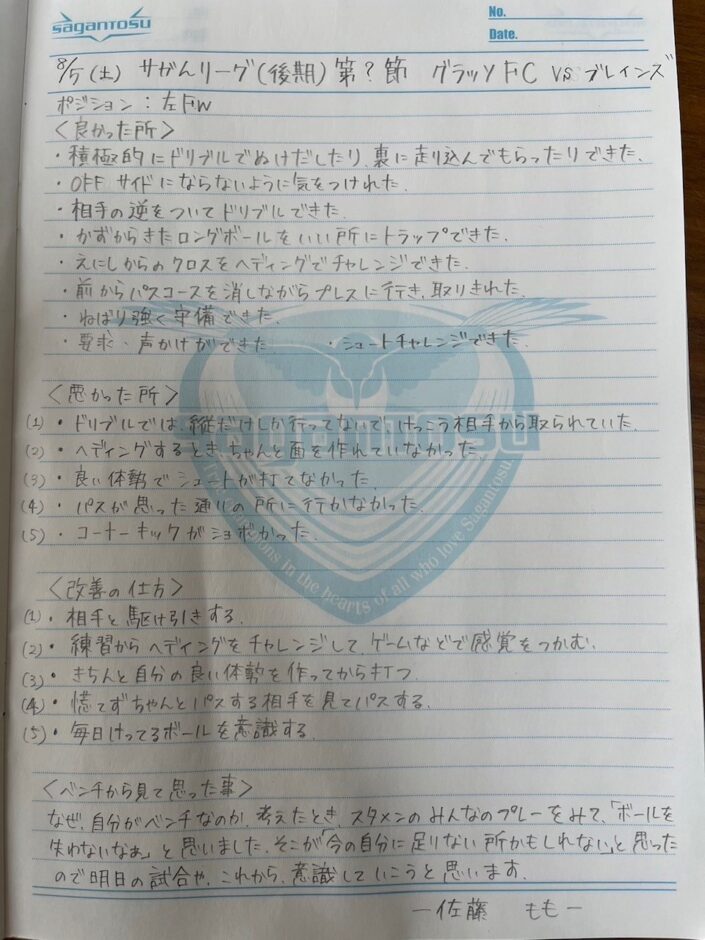 sagantosu
No.
Date.
8/5(土) サガんリーグ(後期) 第?節 グラッソFC VS ブレインズ
ポジション:左FW
<良かった所>
・積極的にドリブルでぬけだしたり、裏に走り込んでもらったりできた。
・OFFサイドにならないように気をつけれた。
・相手の逆をついてドリブルできた。
・かずからきたロングボールをいい所にトラップできた。
・えにしからのクロスをヘディングでチャレンジできた。
・前からパスコースを消しながらプレスに行き、取りきれた。
・ねばり強く守備できた。
・要求・声かけができた ・シュートチャレンジできた。
<悪かった所>
(1)・ドリブルでは、縦だけしか行ってないで けっこう相手から取られていた。
(2)・ヘディングするとき、ちゃんと面を作れていなかった。
(3)・良い体勢でシュートが打てなかった
(4)・パスが思った通りの所に行かなかった。
(5)・コーナーキックがショボかった。
<改善の仕方>
(1)・相手と駆け引きする。
(2)・練習からヘディングをチャレンジして、ゲームなどで感覚をつかむ。
(3)・きちんと自分の良い体勢を作ってから打つ
(4)・慌てずちゃんとパスする相手を見てパスする。
(5)・毎日けってるボールを意識する。
<ベンチから見て思った事>
なぜ、自分がベンチなのか、考えたとき、スタメンのみんなのプレーをみて、「ボールを
失わないなぁ」と思いました。そこが「今の自分に足りない所かもしれない」と思った
ので明日の試合や、これから、意識していこうと思います。
ー佐藤 ももー
sagantosu
in the hearts of all who love Sagantosu